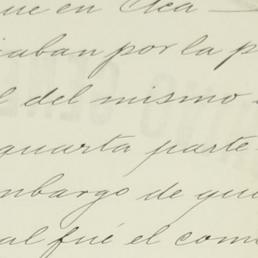 que en Oca
caban por la p
l del mismo
quarta parte
mbargo de que
al fué el com